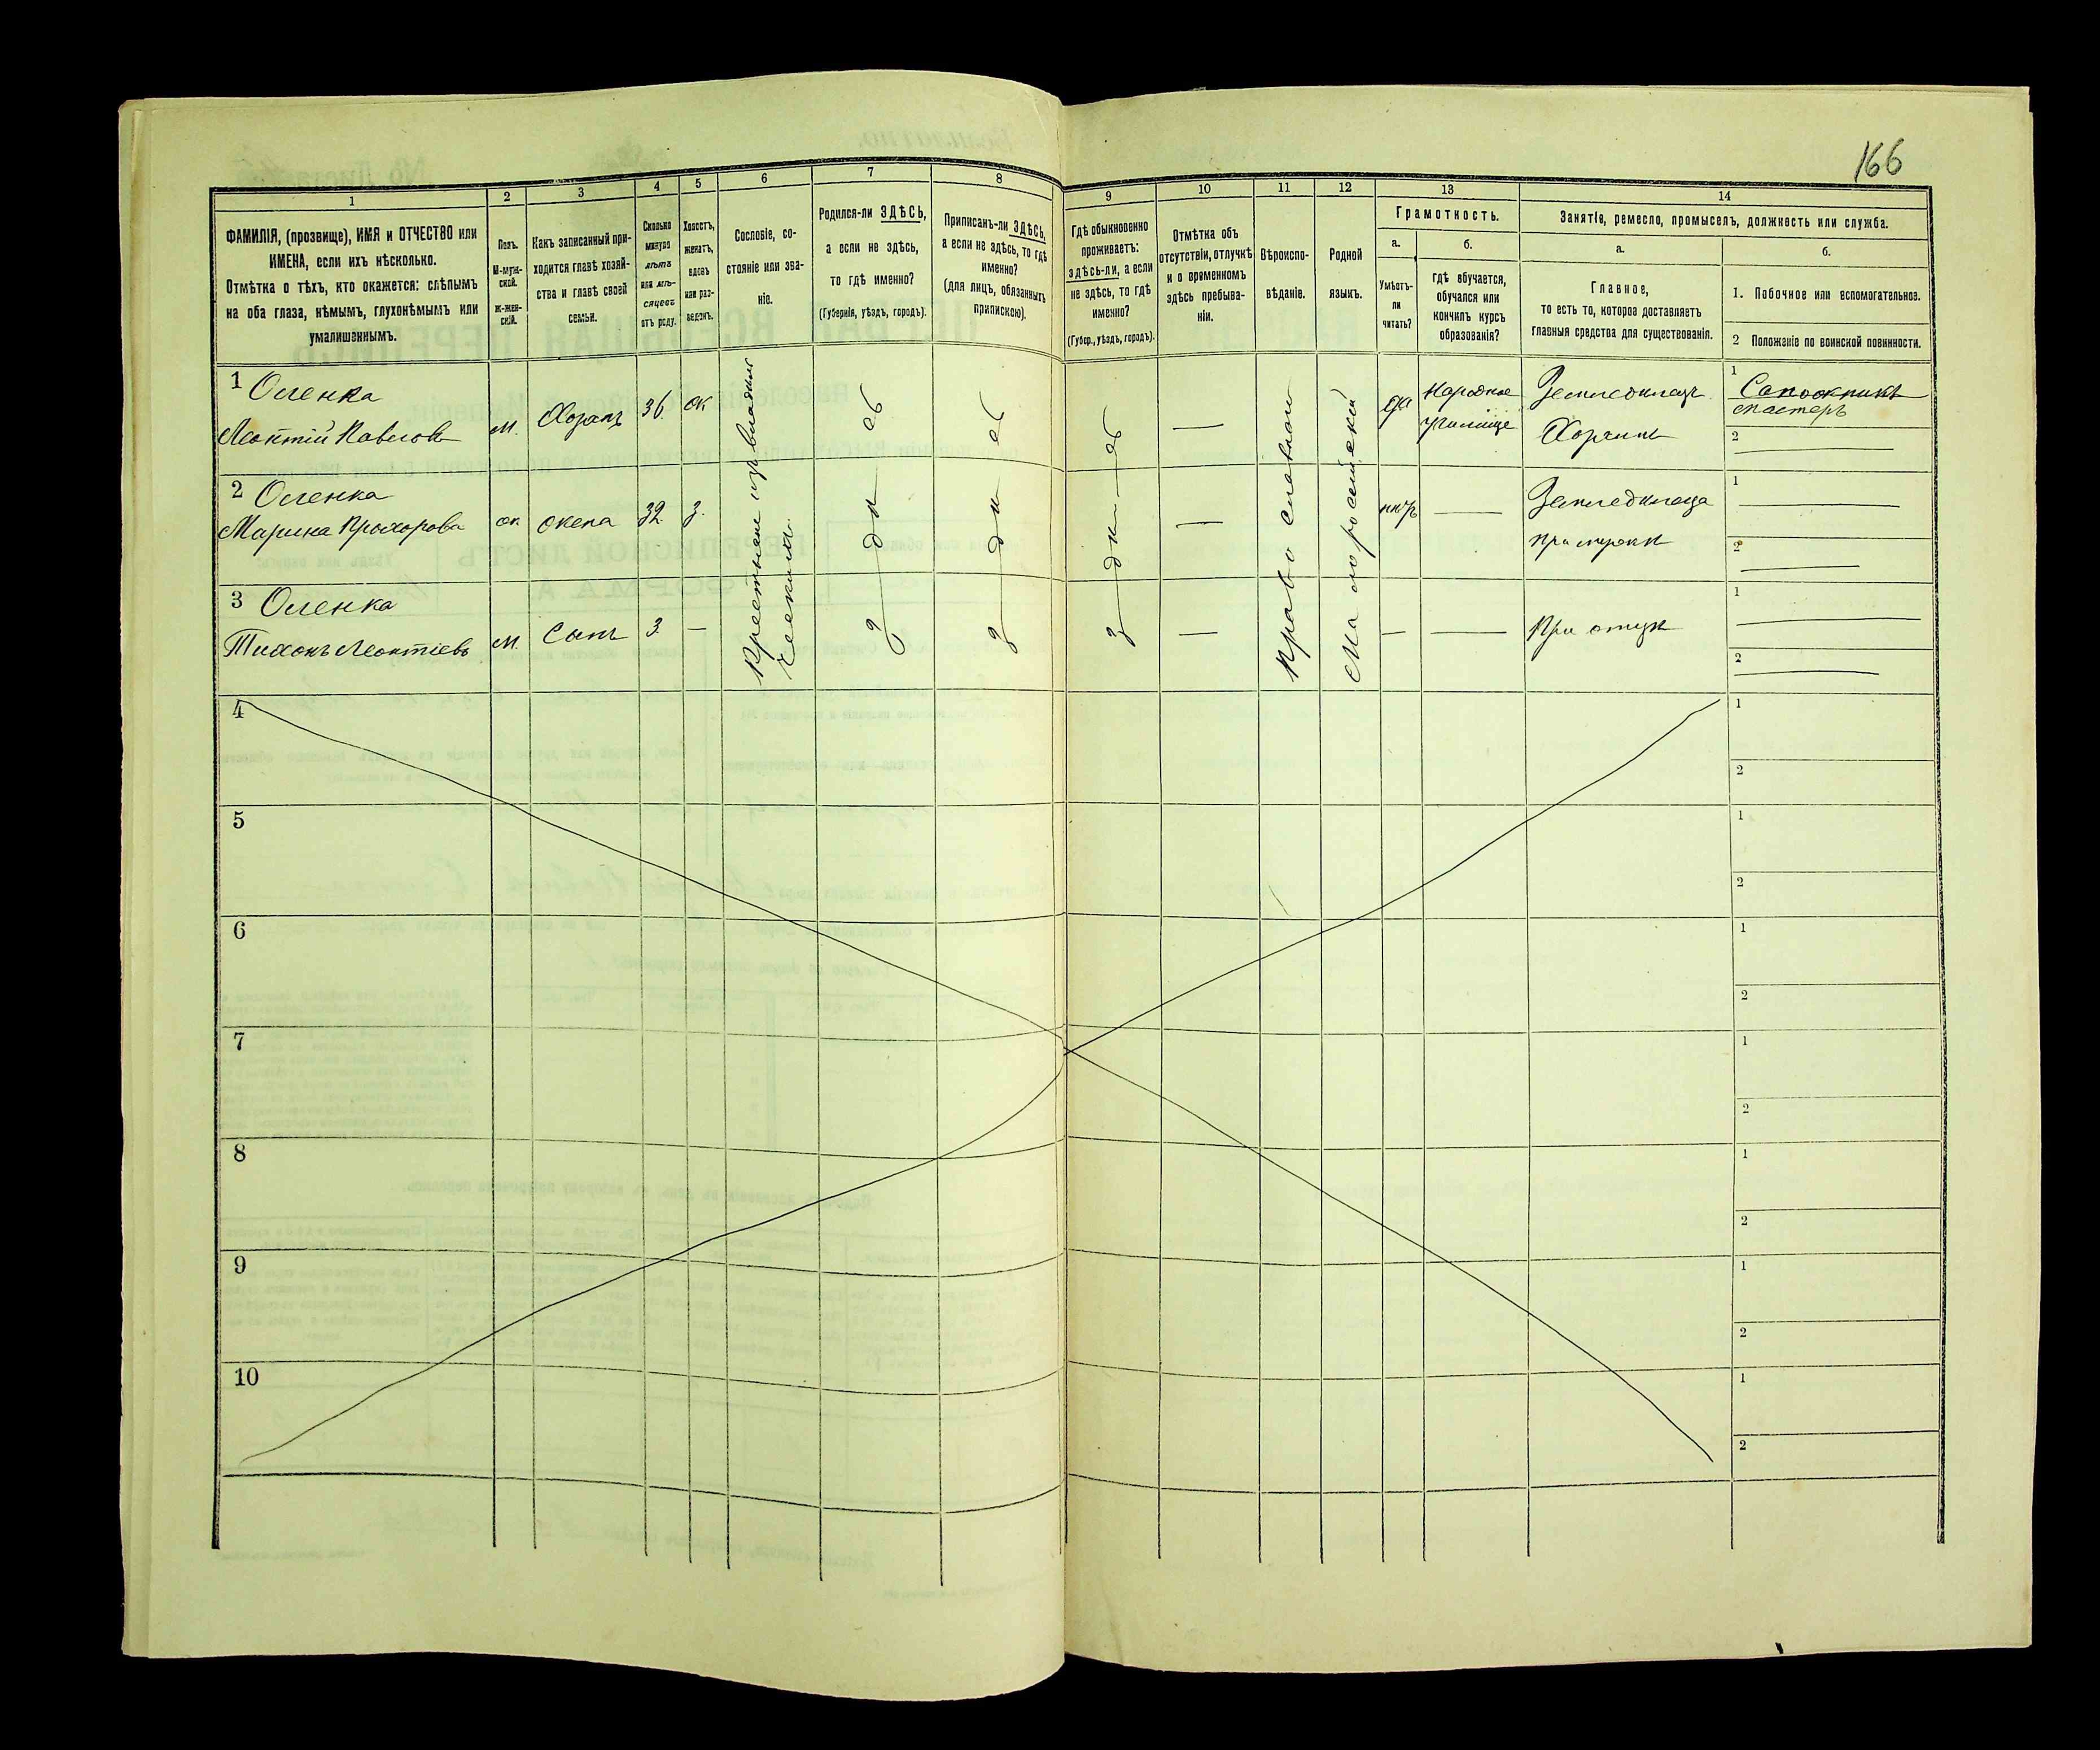 166
1
ФАМИЛІЯ, (прозвище), ИМЯ и ОТЧЕСТВО или
ИМЕНА, если ихъ нѣсколько.
Отмѣтка о тѣхъ, кто окажется: слѣпымъ
на оба глаза, нѣмымъ, глухонѣмымъ или
умалишеннымъ.
2
Полъ.
М-муж-
ской.
Ж-жен-
скій.
3
Какъ записанный при-
ходится главѣ хозяй-
ства и главѣ своей
семьи.
4
Сколько
минуло
лѣтъ
или мѣ-
сяцевъ
отъ роду.
5
Холостъ,
женатъ,
вдовъ
или раз-
веденъ.
6
Сословіе, со-
стояніе или зва-
ніе.
7
Родился-ли ЗДѢСЬ,
а если не здѣсь,
то гдѣ именно?
(Губернія, уѣздъ, городъ).
8
Приписанъ-ли ЗДѢСЬ,
а если не здѣсь, то гдѣ
именно?
(для лицъ, обязанныхъ
припискою).
9
Гдѣ обыкновенно
проживаетъ:
здѣсь-ли, а если
не здѣсь, то гдѣ
именно?
(Губер., уѣздъ, городъ).
10
Отмѣтка объ
отсутствіи, отлучкѣ
и о временномъ
здѣсь пребыва-
ніи.
11
Вѣроиспо-
вѣданіе.
12
Родной
языкъ.
13
Грамотность.
а.
Умѣетъ-
ли
читать?
б.
гдѣ обучается,
обучался или
кончилъ курсъ
образованія?
14
Занятіе, ремесло, промыселъ, должность или служба.
а.
Главное,
то есть то, которое доставляетъ
главныя средства для существованія.
б.
1. Побочное или вспомогательное.
2 Положеніе по воинской повинности.
1 Оленка
Леонтій Павловъ
м.
Хозяинъ
36
ж
Крестьяне изъ владѣль
ческихъ
здѣсь
здѣсь
здѣсь
—
Православное
Малороссійскій
да
Народное
училище
Земледѣлецъ
Хозяинъ
1
Сапожникъ
мастеръ
2
2 Оленка
Марина Прохорова
ж
жена
32
з.
—
нѣтъ
—
Земледѣлица
при мужѣ
1
2
3 Оленка
Тихонъ Леонтіевъ
м.
Сынъ
3
—
—
—
—
При отцѣ
1
2
4
1
2
5
1
2
6
1
2
7
1
2
8
1
2
9
1
2
10
1
2